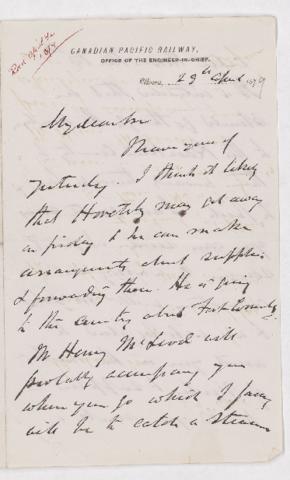 CANADIAN PACIFIC RAILWAY,
OFFICE OF THE ENGINEER-IN-CHIEF.
Ottawa, 29th April 1879
My dear Sir
I have yours of
yesterday. I think it likely
that Horetzky may get away
on friday & he can make
arrangements about supplies
& forwarding them. He is going
to the country about Fort
Mr Henry McLeod will
probably accompany you
when you go which I fancy
will be to catch a steamer